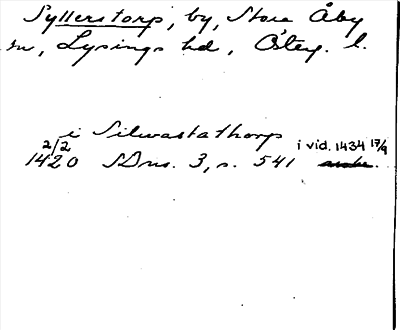 Syllerstorp, by, Stora Åby
sn, Lysings hd, Östg. l.
i Silwastathorp
2/2 1420 SDns. 3, s. 541 i vid. 1434 17/9